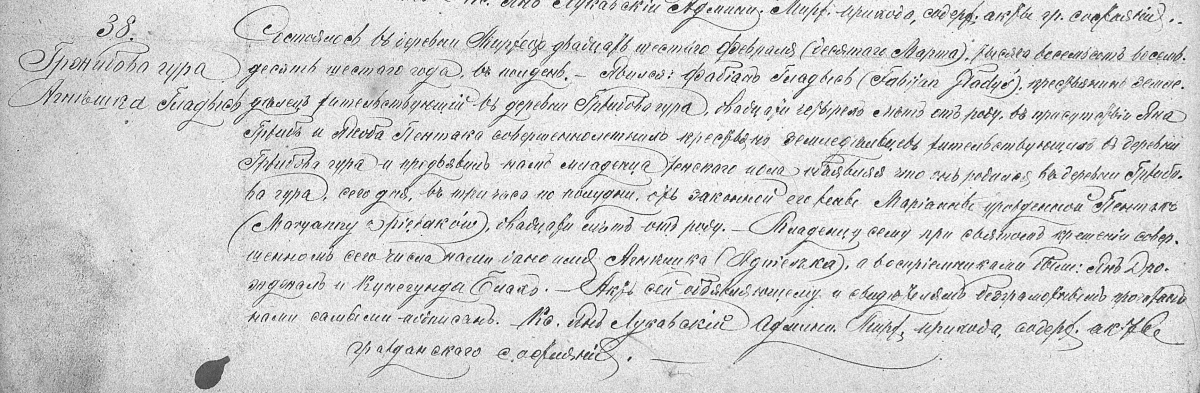 Кс. Янъ Лукавскій Админи. Пирф. прихода, содерж. акты гр. состоянія.
38. Состоялось въ деревни двадцать шестаго Февраля (десятаго Марта), тысяча восемьсотъ восемь-
Гронитова гура десятъ шестаго года, въ полдень. — Явился: Фабіанъ Гладысь (Fabijan Gladyś), крестьянинъ земле-
Агнѣшка Гладысь дѣлецъ жительствующій въ деревни Гржибова гура, двадцати четырехъ лѣтъ отъ роду, въ присутствіи Яна
Гржибъ и Якоба Пентака совершеннолѣтнихъ крестьянъ земледѣльцевъ жительствующихъ въ деревни
Гржибова гура и предъявилъ намъ младенца женскаго пола объявляя что онъ родился въ деревни Гржибо-
ва гура, сего дня, въ три часа по полудни, отъ законной его жены Маріанны урожденной Пентакъ
(Maryanny z Pientaków), двадцати лѣтъ отъ роду. — Младенцу сему при святомъ крещеніи совер-
шенномъ сего числа нами дано имя Агнишка (Agnieszka), а воспріемниками были: Янъ Дро-
ждувалъ и Кунегунда Биакъ. — Актъ сей объявляющему и свидѣтелямъ безграмотнымъ прочитанъ
нами самыми подписанъ. Кс. Янъ Лукавскій Админи. Пирф. прихода, содерж. акты
гражданскаго состоянія. —